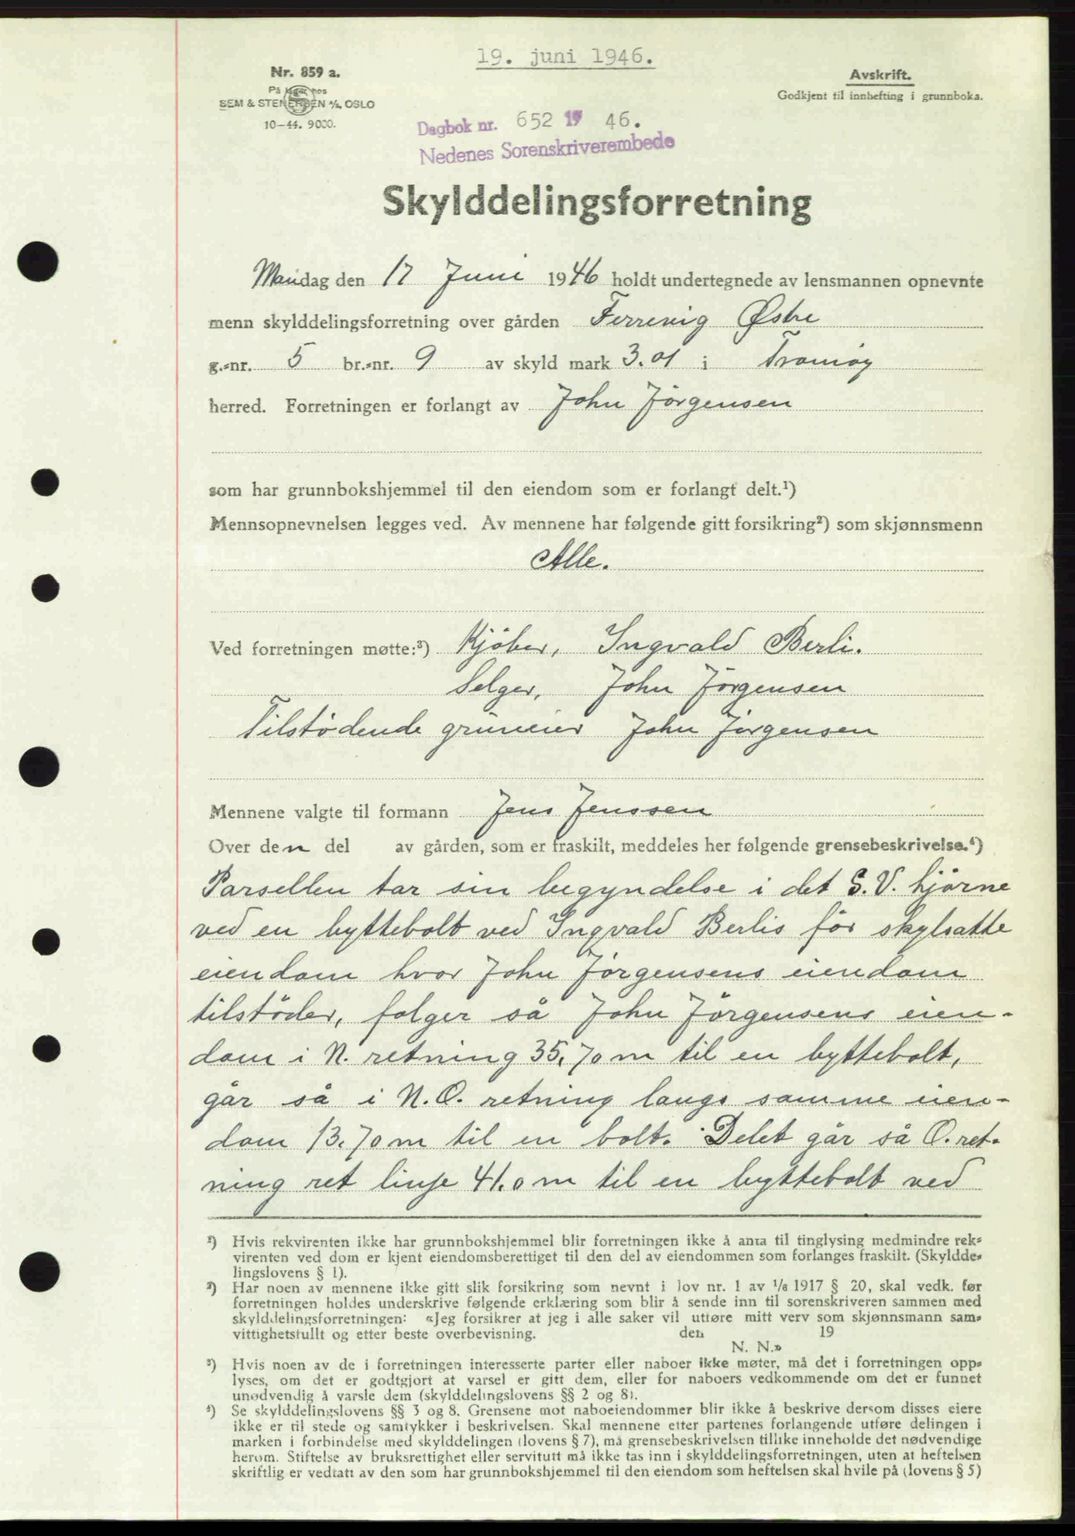 19. juni 1946.
Nr. 859 a.
På lager hos
SEM & STENERSEN A/S, OSLO
10-44. 9000.
Avskrift.
Godkjent til innhefting i grunnboka.
Dagbok nr. 652 19 46.
Nedenes Sorenskriverembede
Skylddelingsforretning
Mandag den 17 Juni 1946 holdt undertegnede av lensmannen opnevnte
menn skylddelingsforretning over gården Ferrevig Østre
g.-nr. 5 br.-nr. 9 av skyld mark 3.01 i Tromøy
herred. Forretningen er forlangt av John Jörgensen
som har grunnbokshjemmel til den eiendom som er forlangt delt.¹)
Mennsopnevnelsen legges ved. Av mennene har følgende gitt forsikring²) som skjønnsmenn
Alle.
Ved forretningen møtte:³) Kjöber, Ingvald Berli.
Selger, John Jörgensen
Tilstödende gruneier John Jörgensen
Mennene valgte til formann Jens Jenssen
Over den del av gården, som er fraskilt, meddeles her følgende grensebeskrivelse.⁴)
Parsellen tar sin begyndelse i det S.V. hjörne
ved en byttebolt ved Ingvald Berlis för skylsatte
eiendom hvor John Jörgensens eiendom
tilstöder, folger så John Jörgensens eien-
dom i N. retning 35,70 m til en byttebolt,
går så i N.O. retning langs samme eien-
dom 13.70 m til en bolt. Delet går så O. ret-
ning ret linje 41.0 m til en byttebolt ved
¹) Hvis rekvirenten ikke har grunnbokshjemmel blir forretningen ikke å anta til tinglysing medmindre rek-
virenten ved dom er kjent eiendomsberettiget til den del av eiendommen som forlanges fraskilt. (Skyldde-
lingslovens § 1).
²) Har noen av mennene ikke gitt slik forsikring som nevnt i lov nr. 1 av 1/6 1917 § 20, skal vedk. før
forretningen holdes underskrive følgende erklæring som blir å sende inn til sorenskriveren sammen med
skylddelingsforretningen: «Jeg forsikrer at jeg i alle saker vil utføre mitt verv som skjønnsmann sam-
vittighetsfullt og etter beste overbevisning. den 19
N. N.»
³) Hvis noen av de i forretningen interesserte parter eller naboer ikke møter, må det i forretningen opp-
lyses, om det er godtgjort at varsel er gitt dem, eller for naboers vedkommende om det er funnet
unødvendig å varsle dem (skylddelingslovens §§ 2 og 8).
⁴) Se skylddelingslovens §§ 3 og 8. Grensene mot naboeiendommer blir ikke å beskrive dersom disses eiere
ikke er til stede og samtykker i beskrivelsen. Skal mennene etter partenes forlangende utføre delingen i
marken i forbindelse med skylddelingen (lovens § 7), må grensebeskrivelsen tillike inneholde det nødvendige
herom. Stiftelse av bruksrettighet eller servitutt må ikke tas inn i skylddelingsforretningen, uten at heftelsen
skriftlig er vedtatt av den som har grunnbokshjemmel til den eiendom som heftelsen skal hvile på (lovens § 5)